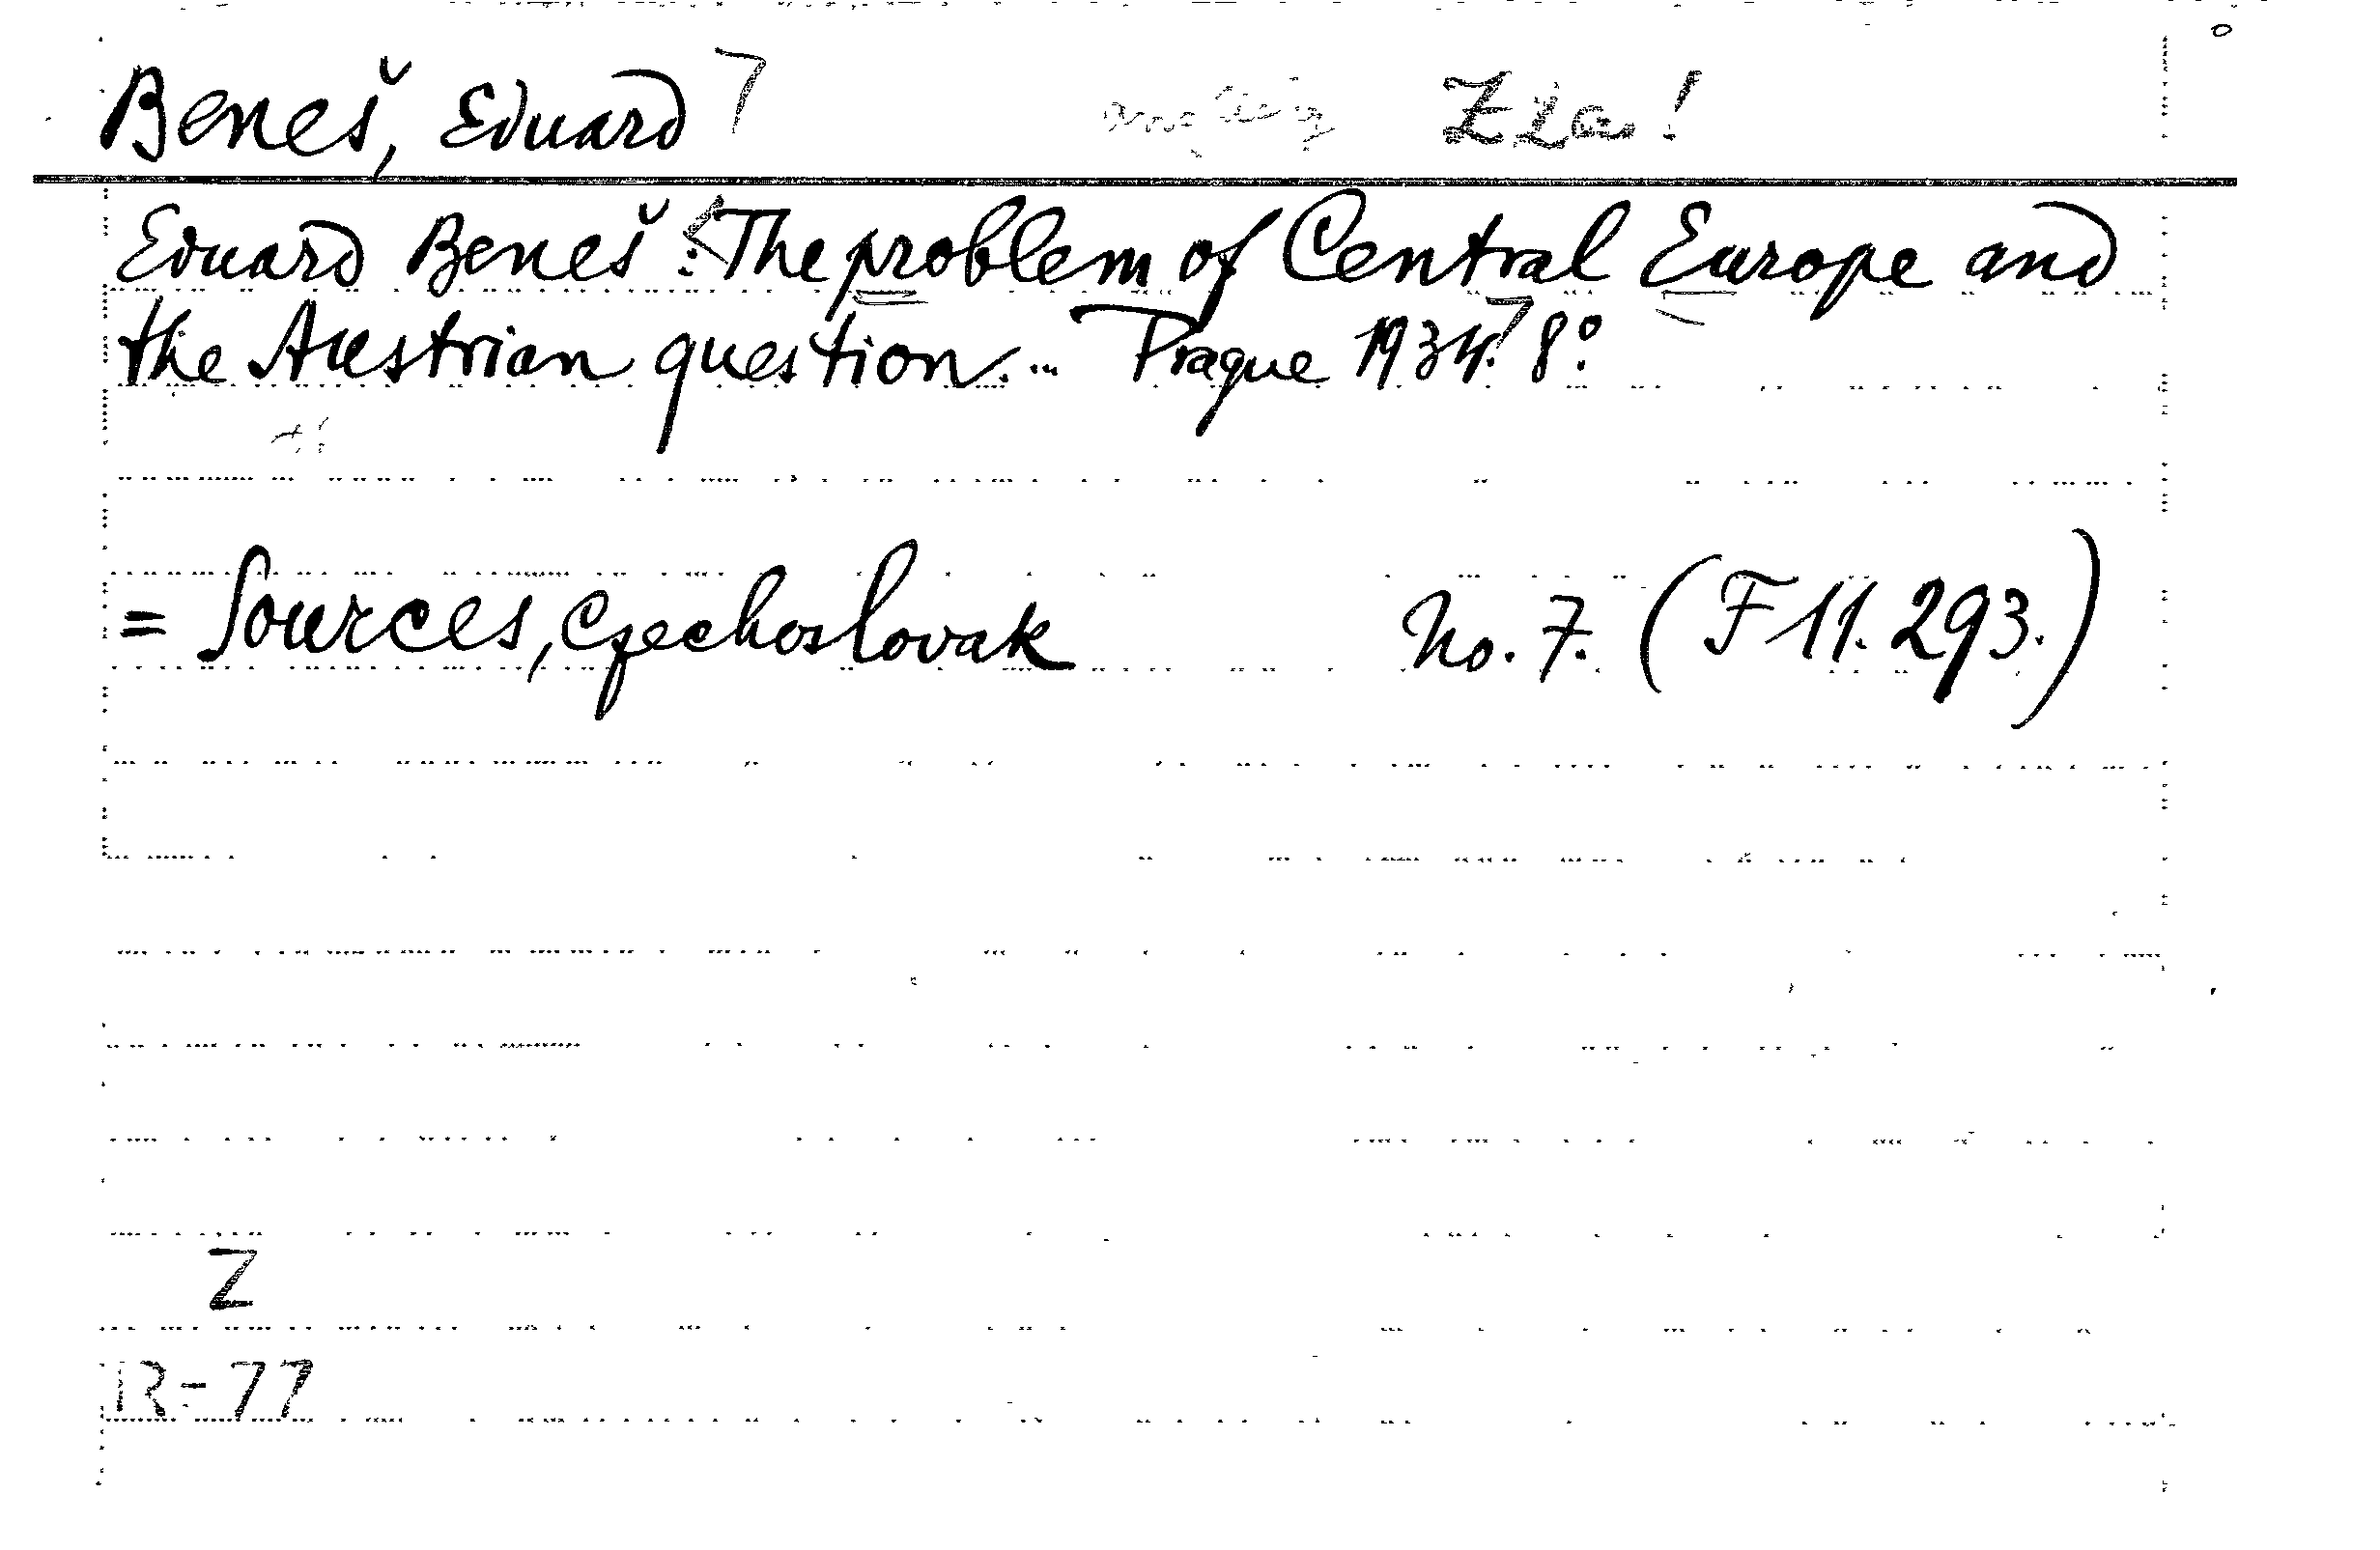 Beneš, Eduard
Eduard Beneš: The problem of Central Europe and
the Austrian question. ... Prague 1934. 8°.
= Sources, Czechoslovak No. 7. (F 11. 293.)
Z
R-77